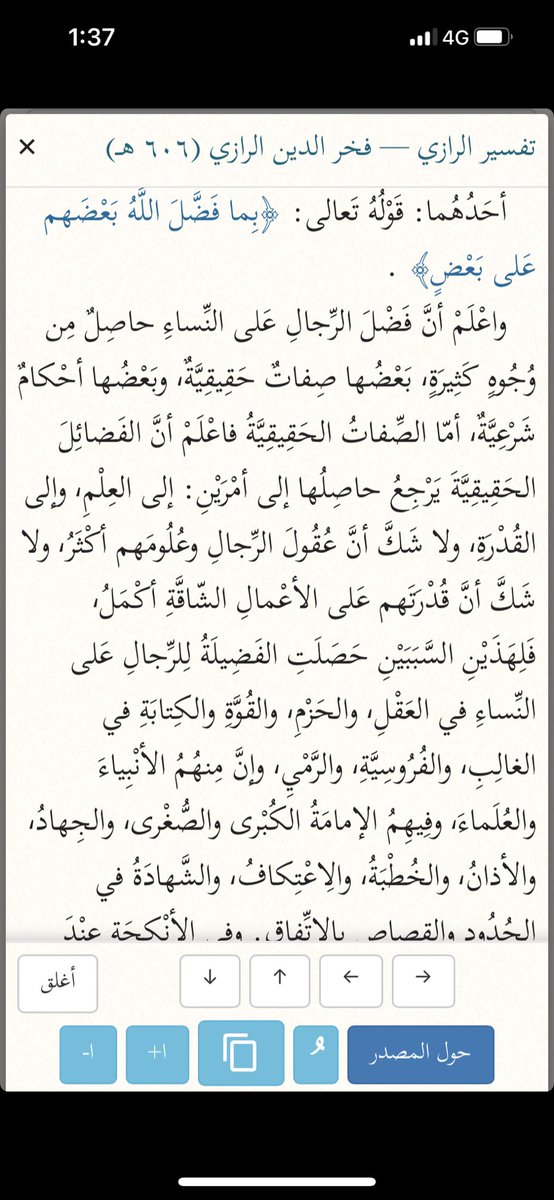 1:37
4G
تفسير الرازي — فخر الدين الرازي (٦٠٦ هـ)
×
أحَدُهُما: قَوْلُهُ تَعالى: ﴿بِما فَضَّلَ اللَّهُ بَعْضَهم
عَلى بَعْضٍ﴾ .
واعْلَمْ أنَّ فَضْلَ الرِّجالِ عَلى النِّساءِ حاصِلٌ مِن
وُجُوهٍ كَثِيرَةٍ، بَعْضُها صِفاتٌ حَقِيقِيَّةٌ، وبَعْضُها أحْكامٌ
شَرْعِيَّةٌ، أمّا الصِّفاتُ الحَقِيقِيَّةُ فاعْلَمْ أنَّ الفَضائِلَ
الحَقِيقِيَّةَ يَرْجِعُ حاصِلُها إلى أمْرَيْنِ: إلى العِلْمِ، وإلى
القُدْرَةِ، ولا شَكَّ أنَّ عُقُولَ الرِّجالِ وعُلُومَهم أكْثَرُ، ولا
شَكَّ أنَّ قُدْرَتَهم عَلى الأعْمالِ الشّاقَّةِ أكْمَلُ،
فَلِهَذَيْنِ السَّبَبَيْنِ حَصَلَتِ الفَضِيلَةُ لِلرِّجالِ عَلى
النِّساءِ في العَقْلِ، والحَزْمِ، والقُوَّةِ والكِتابَةِ في
الغالِبِ، والفُرُوسِيَّةِ، والرَّمْيِ، وإنَّ مِنهُمُ الأنْبِياءَ
والعُلَماءَ، وفِيهِمُ الإمامَةُ الكُبْرى والصُّغْرى، والجِهادُ،
والأذانُ، والخُطْبَةُ، والِاعْتِكافُ، والشَّهادَةُ في
الحُدُودِ والقِصاصِ بِالِاتِّفاقِ. وفي الأنْكِحَةِ عِنْدَ
أغلق ↓ ↑ ← →
ا- ا+ حول المصدر